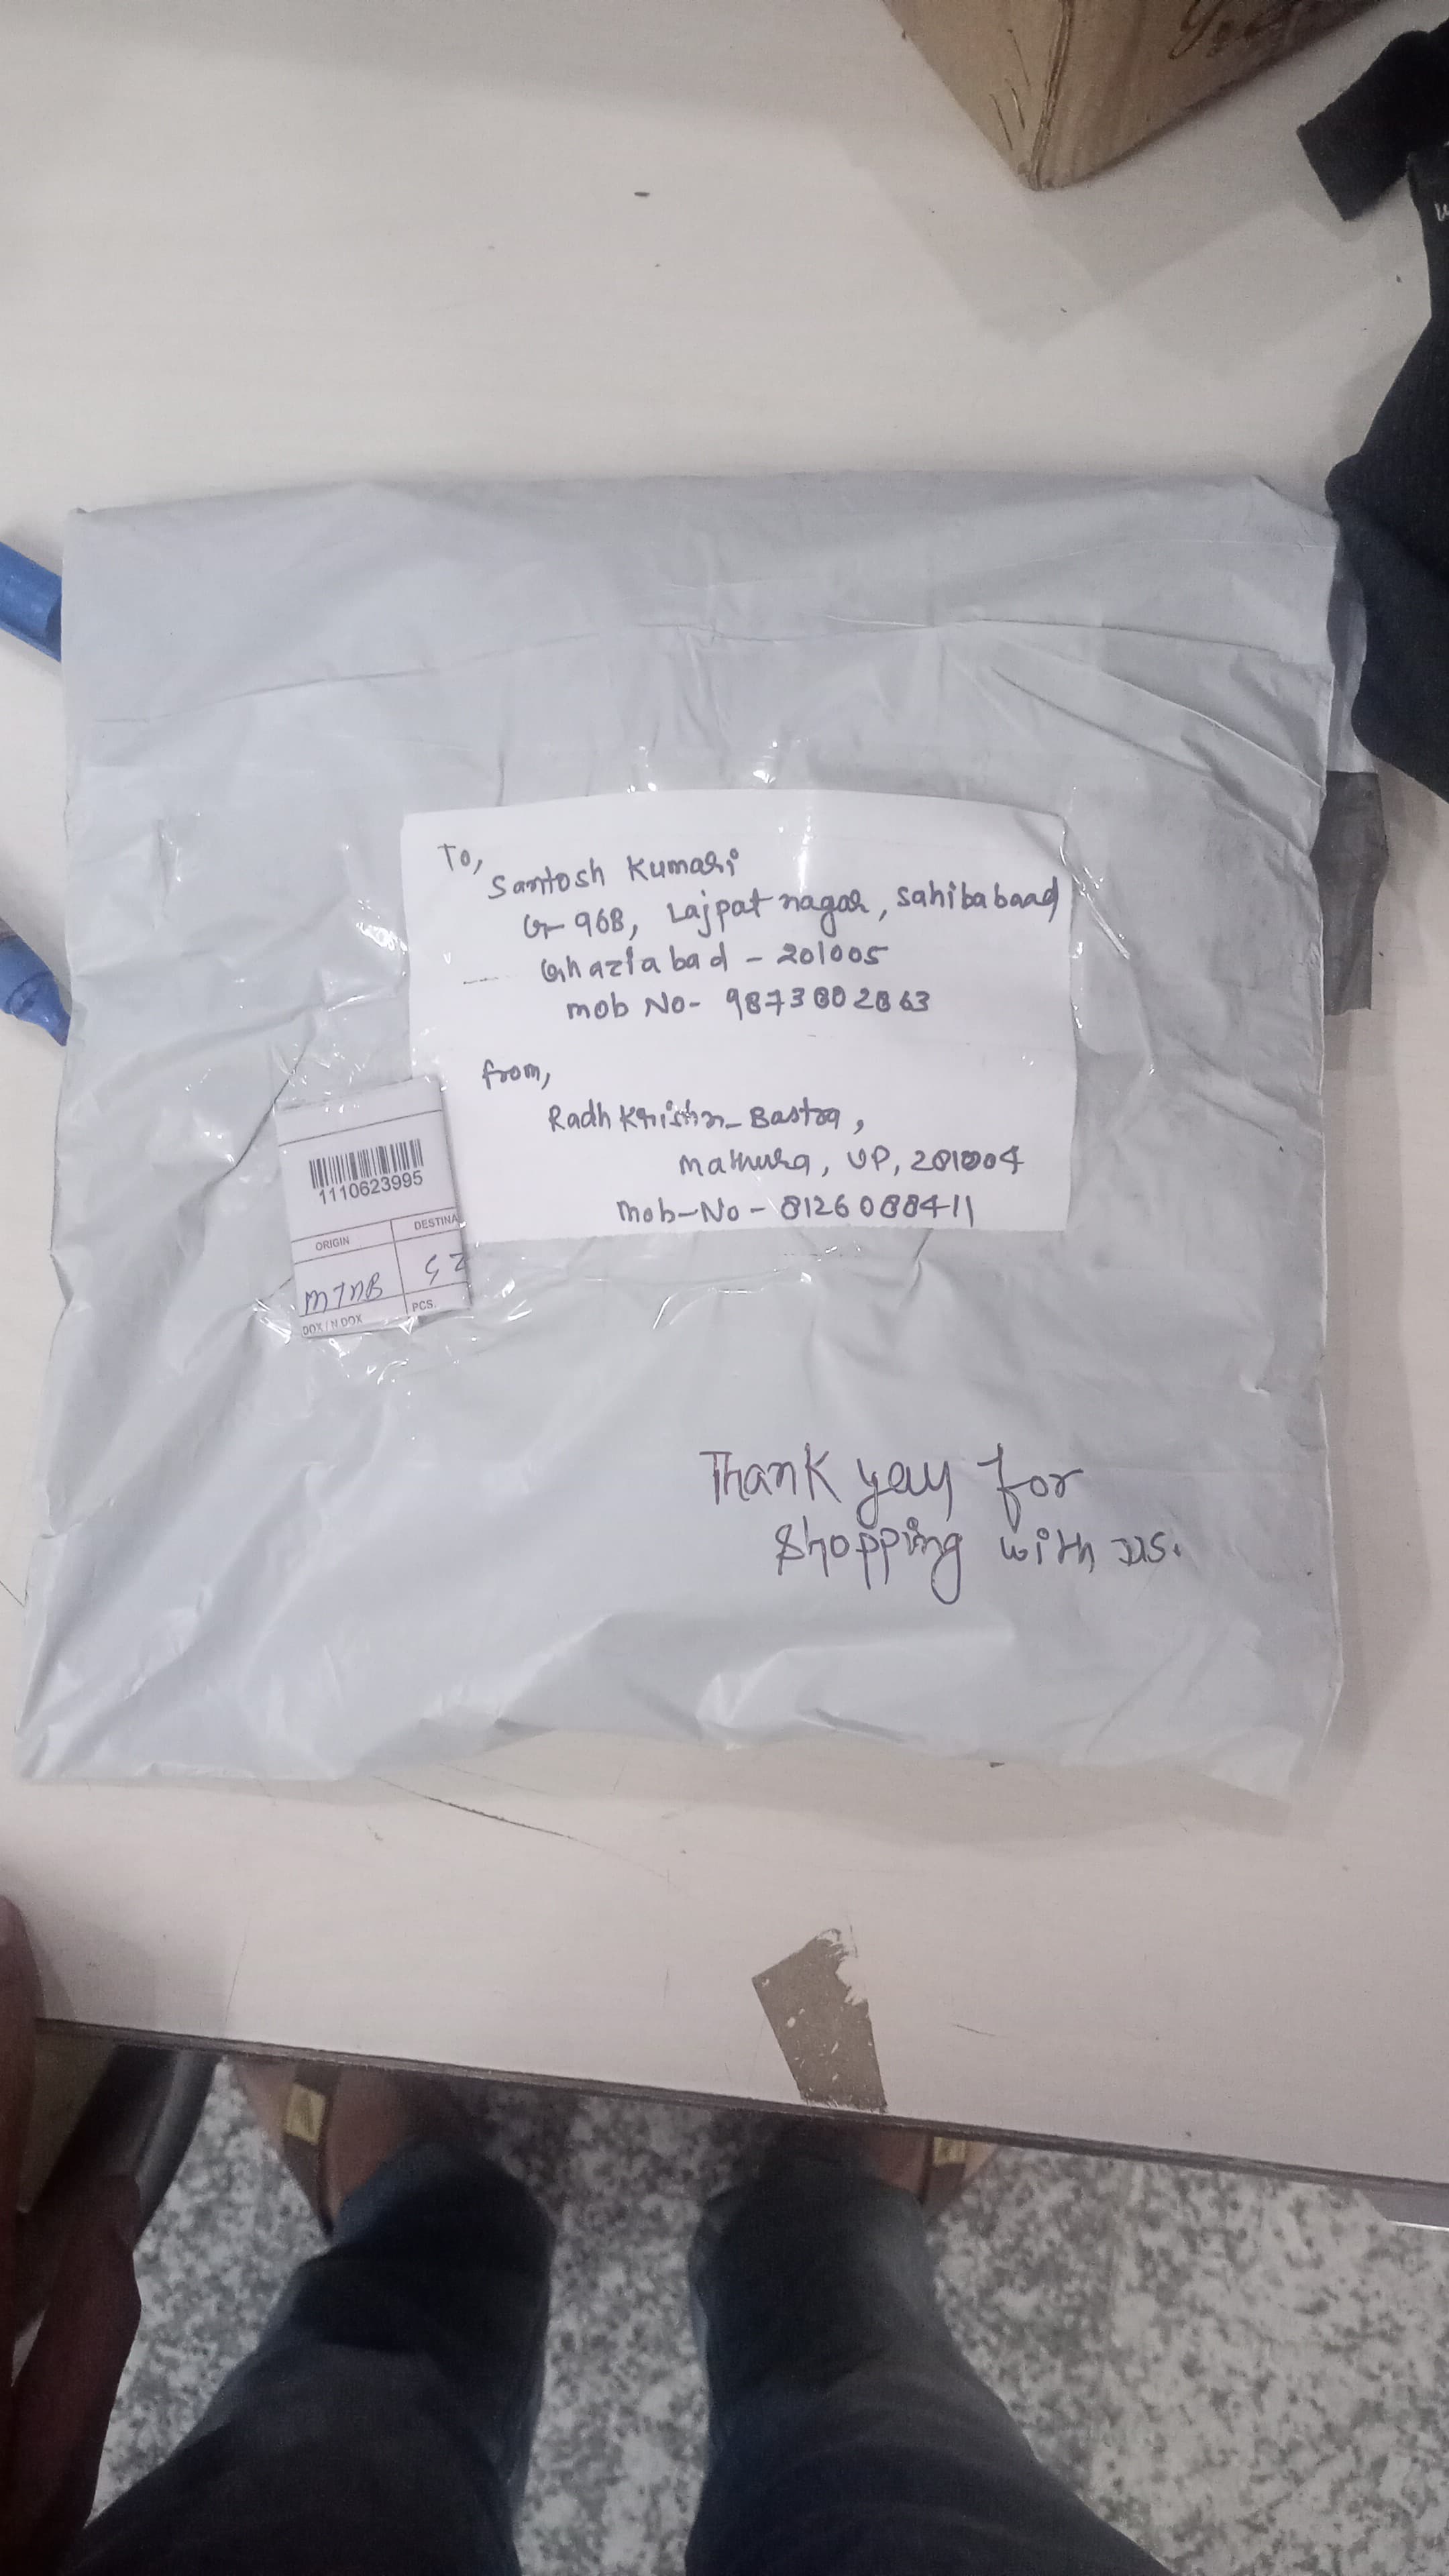 To,
Santosh Kumari
G-96B, Lajpat nagar, Sahibabaad
Ghaziabad - 201005
mob No- 9873802863
from,
Radh Krishn- Bastra,
Mathura, UP, 281004
Mob-No - 8126088411
1110623995
ORIGIN DESTINA
DOX / N DOX PCS.
Thank you for
Shopping with us.